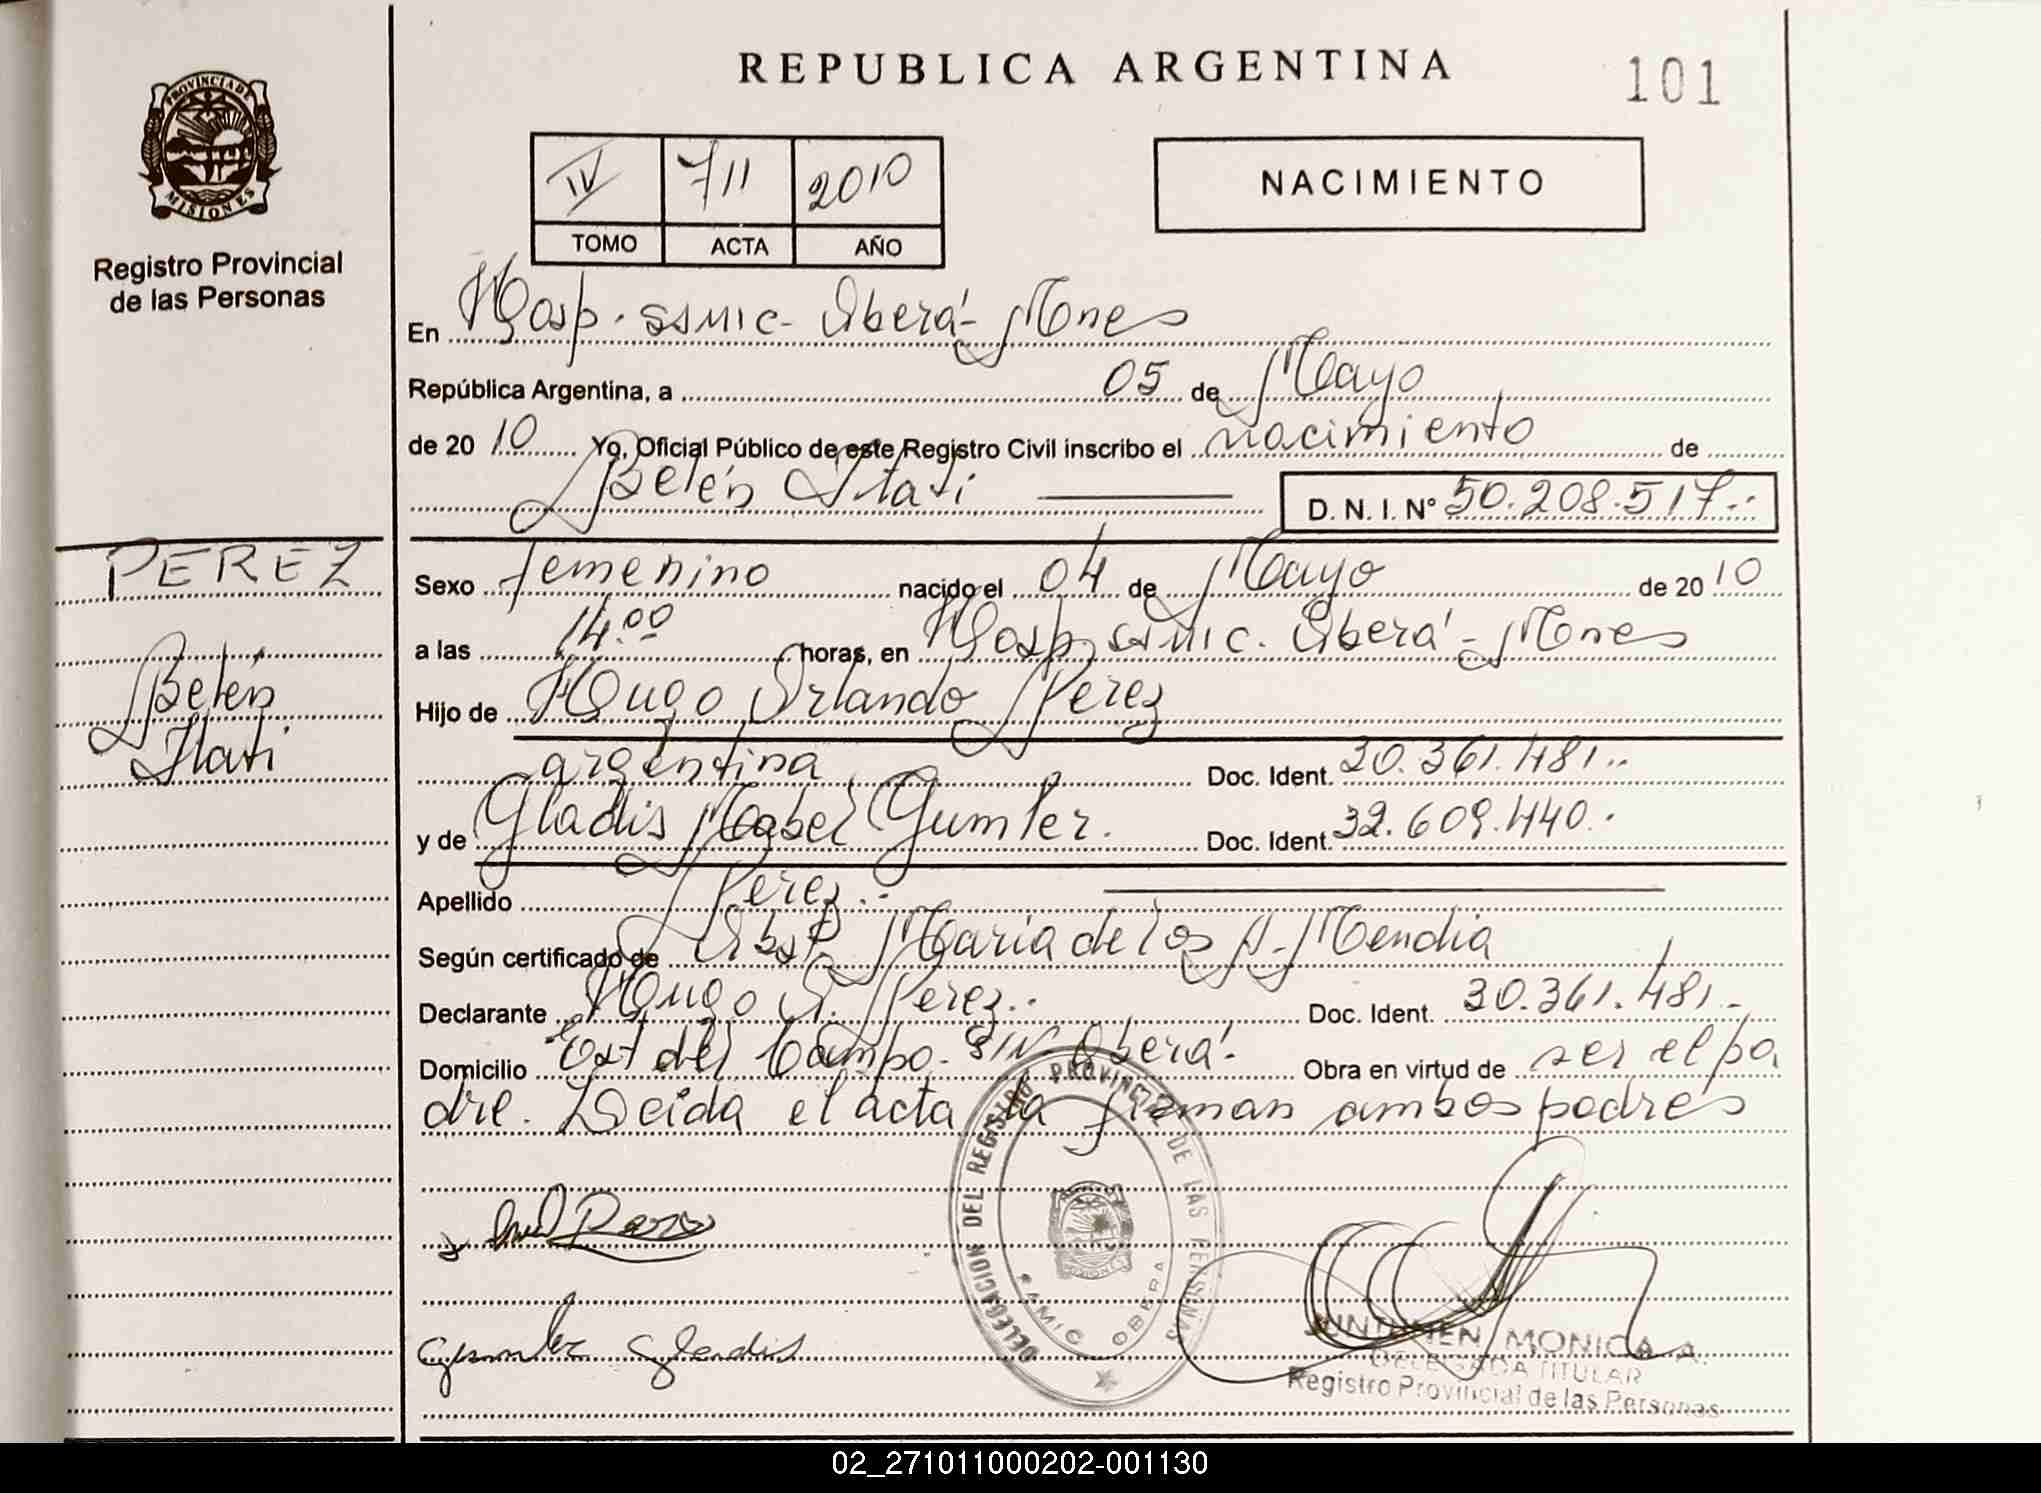 REPUBLICA ARGENTINA
101
PROVINCIA DE
MISIONES
Registro Provincial
de las Personas
IV 711 2010
TOMO ACTA AÑO
NACIMIENTO
En Hosp. SAMIC - Oberá - Mnes
República Argentina, a 05 de Mayo
de 20 10 Yo, Oficial Público de este Registro Civil inscribo el nacimiento de
Belén Itati D. N. I. N° 50.208.517.-
PEREZ
Belén
Itati
Sexo femenino nacido el 04 de Mayo de 20 10
a las 14.00 horas, en Hosp. SAMIC. Oberá - Mnes
Hijo de Hugo Orlando Perez
argentina Doc. Ident. 30.361.481.-
y de Gladis Mabel Gumler. Doc. Ident. 32.609.440.-
Apellido Perez.-
Según certificado de Obst. María de los A. Mendia
Declarante Hugo O. Perez.- Doc. Ident. 30.361.481.-
Domicilio Ext del Campo - S/N - Oberá - Obra en virtud de ser el pa
dre. Leida el acta la firman ambos padres
DELEGACION DEL REGISTRO PROVINCIAL DE LAS PERSONAS
SAMIC OBERA
MISIONES
Perez
Gumler Gladis
JUNTUNEN MONICA A.
DELEGADA TITULAR
Registro Provincial de las Personas
02_271011000202-001130